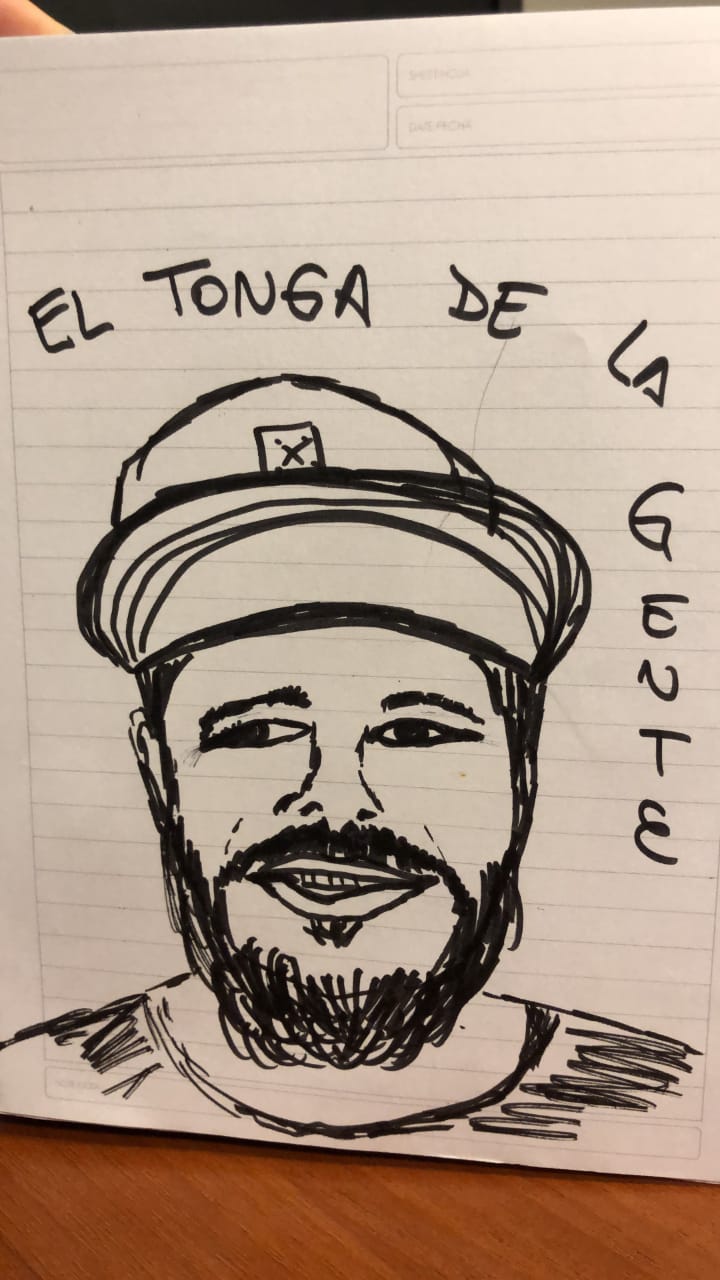 SHEET/HOJA
DATE/FECHA
EL TONGA DE LA GENTE
X